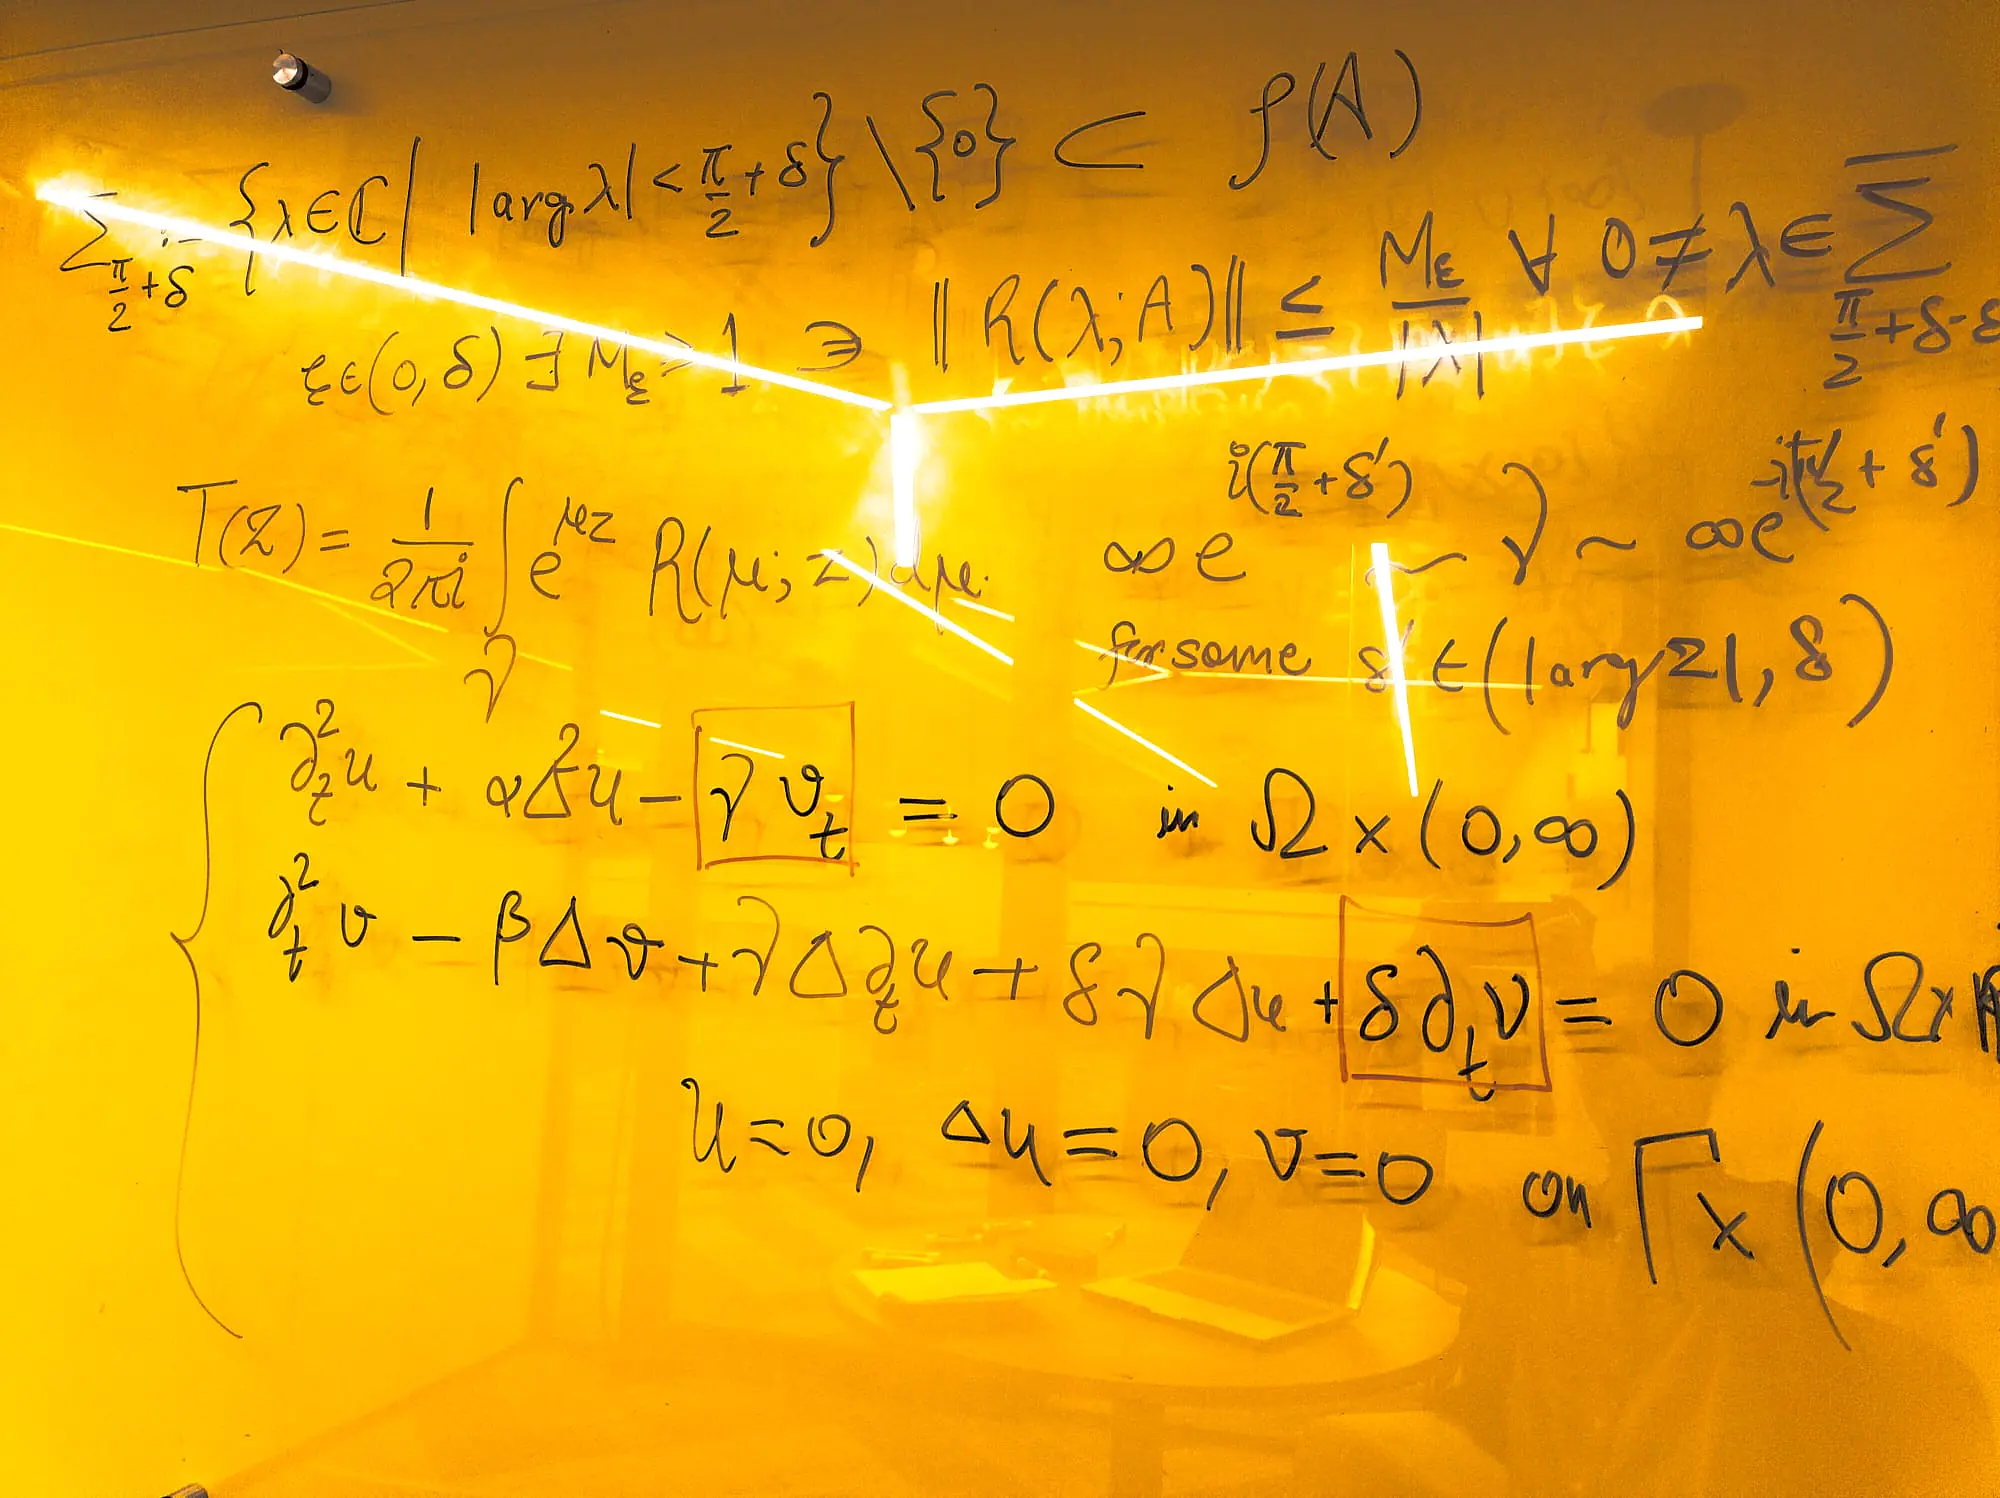 Σ_{π/2+δ} := {λ∈ℂ | |arg λ| < π/2 + δ} \ {0} ⊂ ρ(A)
ξ∈(0,δ) ∃ M_ε ≥ 1 ∋ ‖R(λ;A)‖ ≤ M_ε/|λ| ∀ 0≠λ∈ \overline{Σ}_{π/2+δ-ε}
T(z) = 1/(2πi) ∫_γ e^{μz} R(μ; z) dμ. ∞e^{i(π/2+δ')} ~ γ ~ ∞e^{-i(π/2+δ')}
for some δ' ∈ (|arg z|, δ)
∂_t^2 u + αΔ^2 u − γ v_t = 0 in Ω × (0,∞)
∂_t^2 v − βΔv + γΔ∂_t u + δγΔu + δ∂_t v = 0 in Ω×
u=0, Δu=0, v=0 on Γ × (0,∞